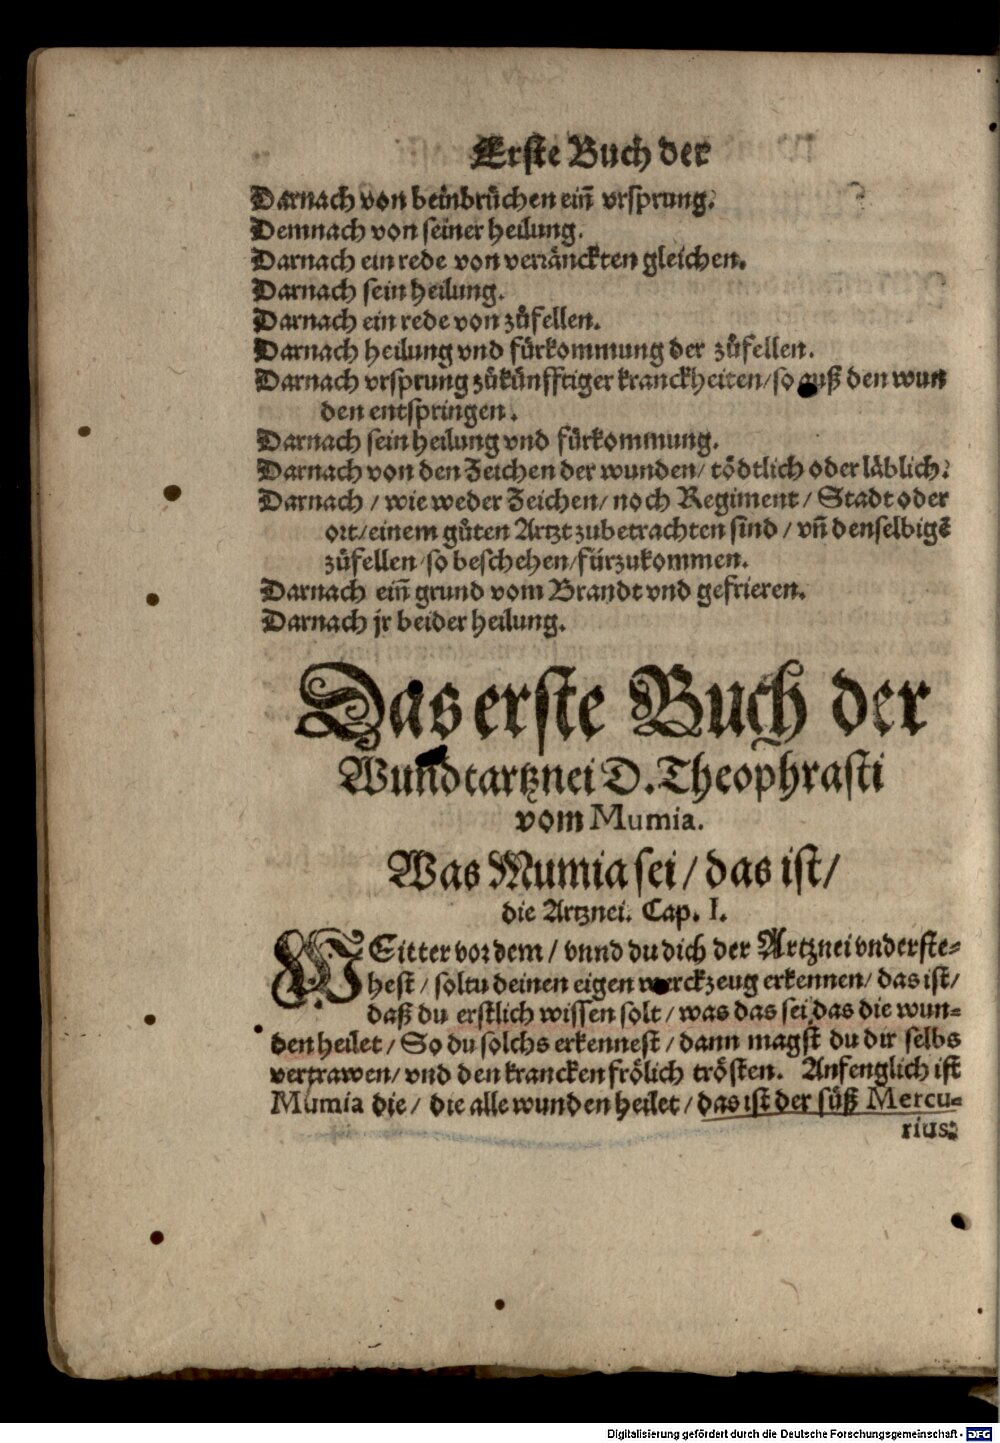 Erste Buch der
Darnach von beinbrüchen ein̄ vrsprung.
Demnach von seiner heilung.
Darnach ein rede von verränckten gleichen.
Darnach sein heilung.
Darnach ein rede von zůfellen.
Darnach heilung vnd fürkommung der zůfellen.
Darnach vrsprung zůkünfftiger kranckheiten/ so auß den wun
den entspringen.
Darnach sein heilung vnd fürkommung.
Darnach von den Zeichen der wunden/ tödtlich oder läblich.
Darnach / wie weder Zeichen/ noch Regiment / Stadt oder
ort/ einem gůten Artzt zubetrachten sind / vn̄ denselbigē
zůfellen so beschehen/ fürzukommen.
Darnach ein̄ grund vom Brandt vnd gefrieren.
Darnach jr beider heilung.
Das erste Buch der
Wundtartznei D. Theophrasti
vom Mumia.
Was Mumia sei / das ist /
die Artznei. Cap. I.
WEitter vor dem / vnnd du dich der Artznei vnderste-
hest / soltu deinen eigen werckzeug erkennen/ das ist/
daß du erstlich wissen solt / was das sei das die wun-
den heilet / So du solchs erkennest / dann magst du dir selbs
vertrawen/ vnd den krancken frölich trösten. Anfenglich ist
Mumia die / die alle wunden heilet / das ist der süß Mercu-
rius:
Digitalisierung gefördert durch die Deutsche Forschungsgemeinschaft - DFG